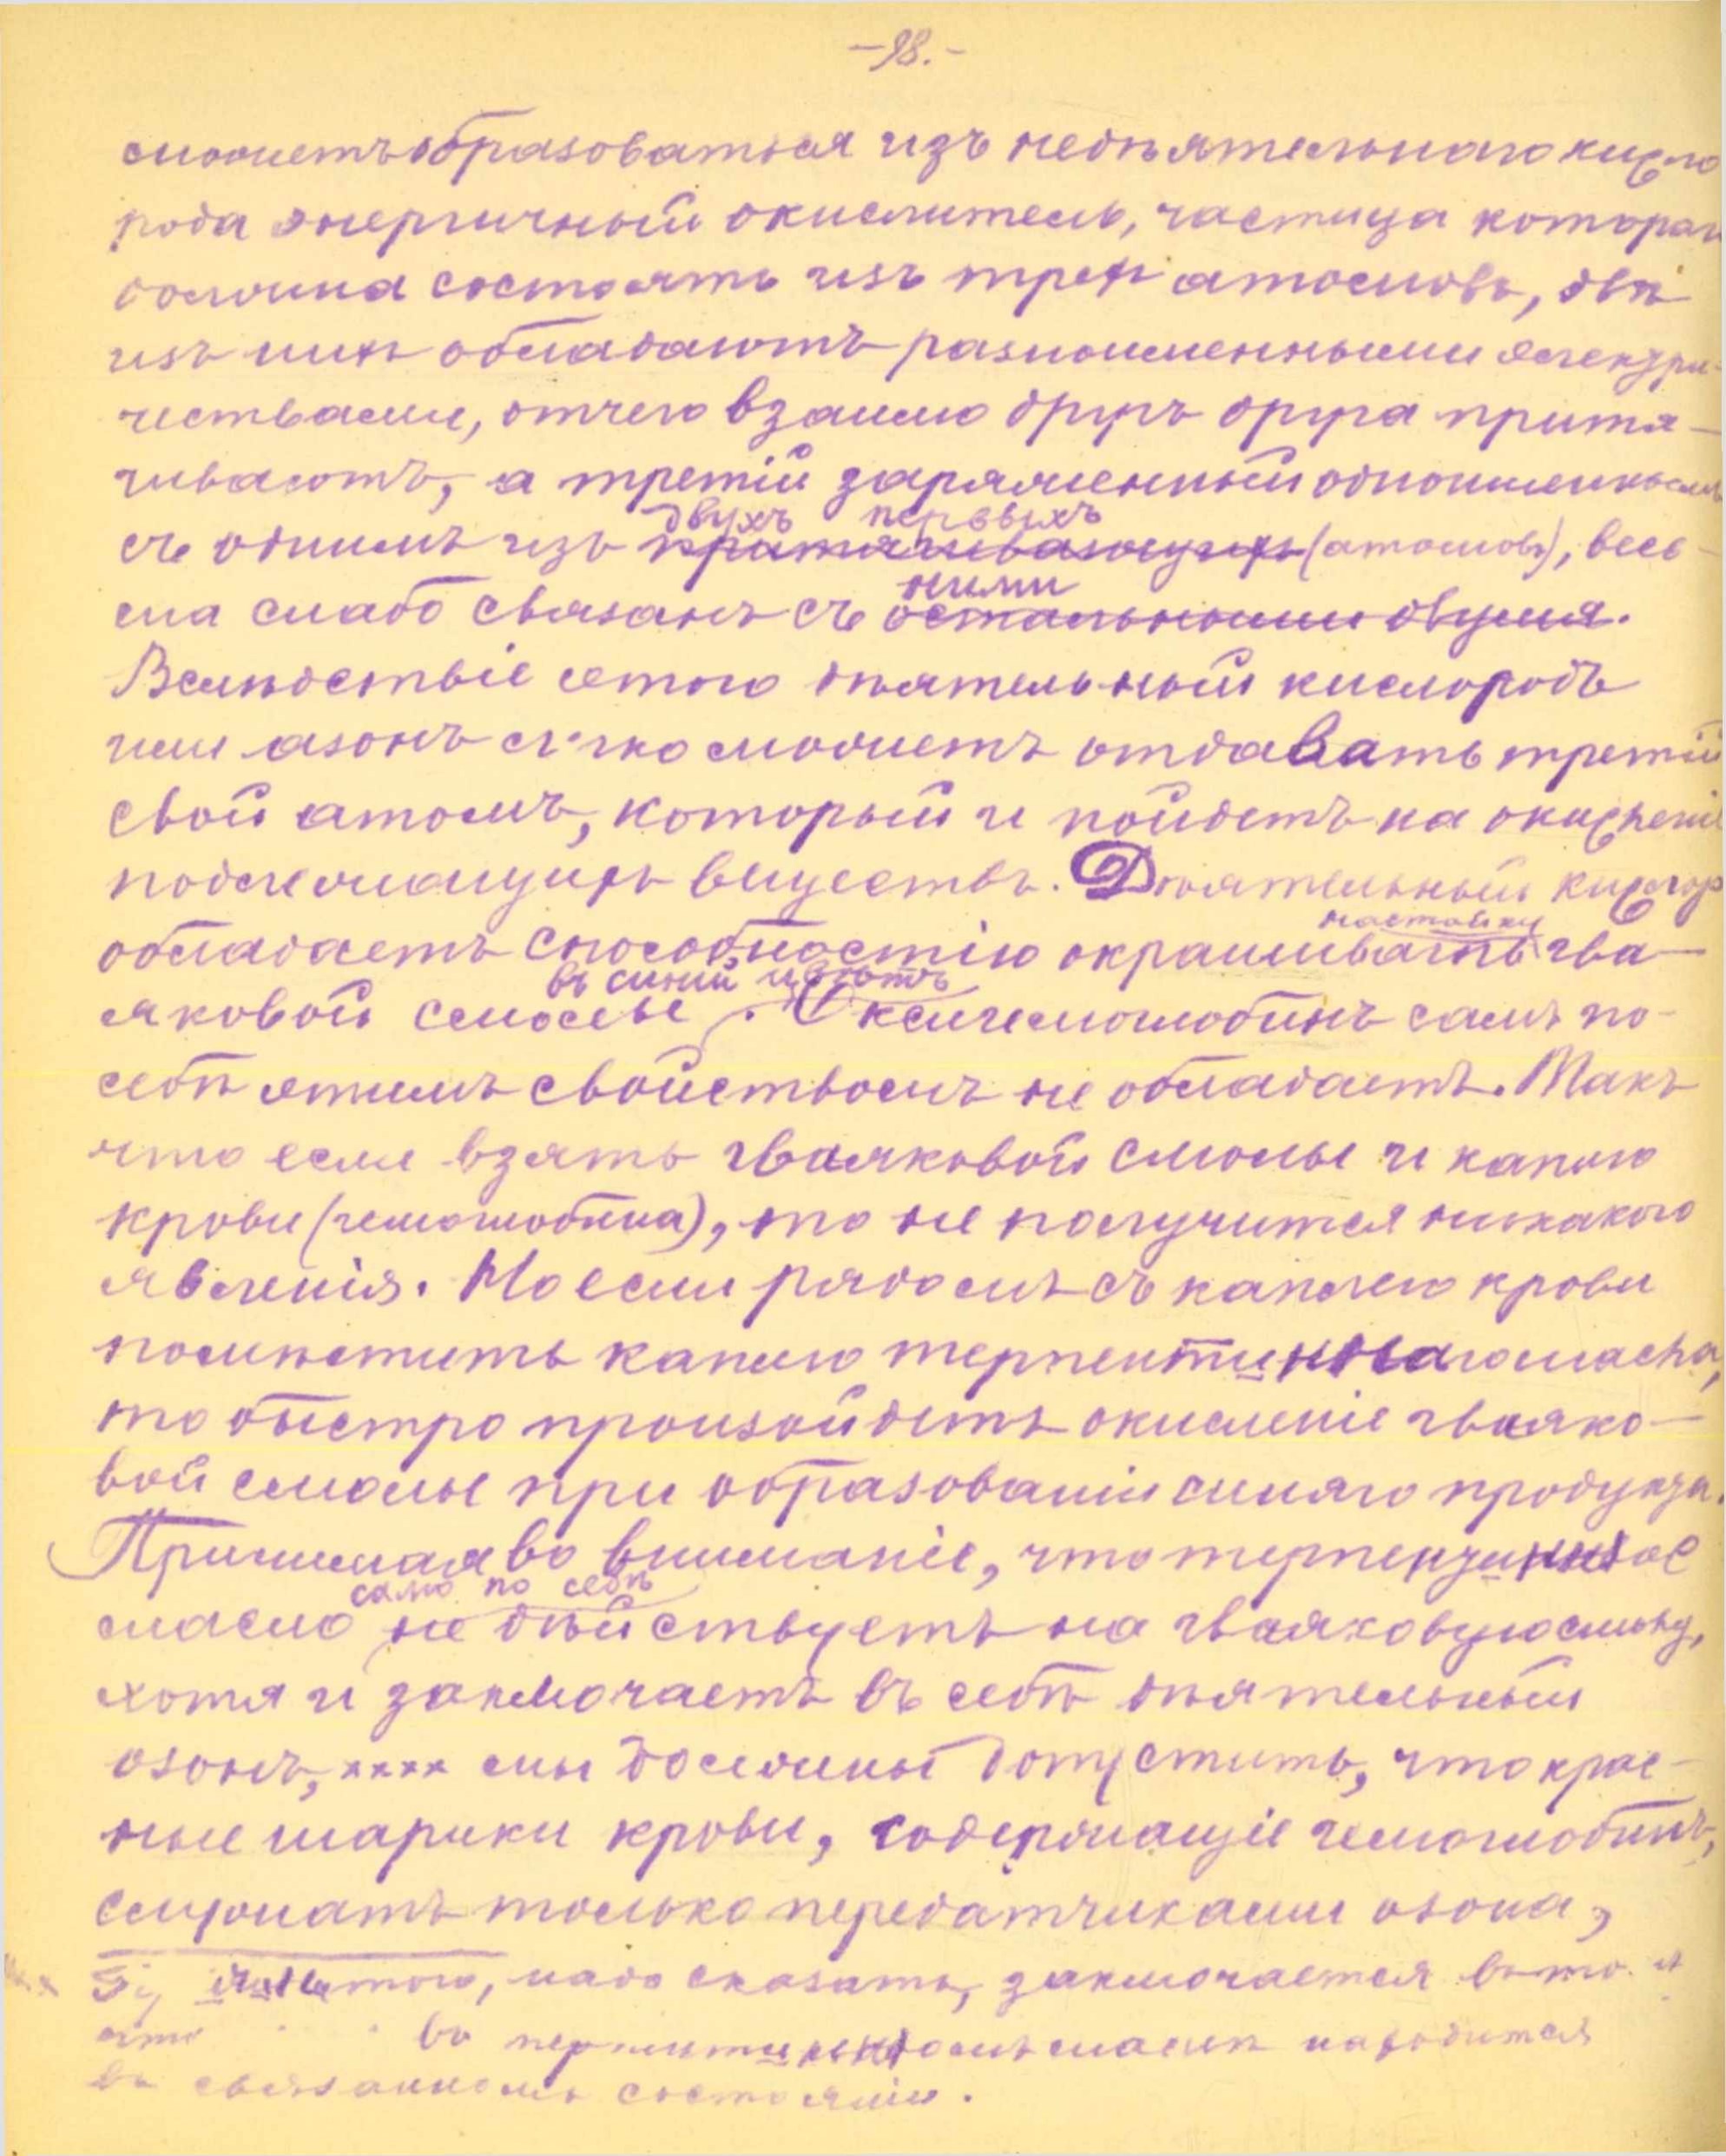 -98.-
можетъ образоваться изъ недѣятельнаго кисло
рода энергичный окислитель, частица котораго
должна состоять изъ трехъ атомовъ, двѣ
изъ нихъ обладаютъ разноименными электри-
чествами, отчего взаимо другъ друга притя-
гиваютъ, а третій заряженный одноименнымъ
двухъ первыхъ
съ однимъ изъ притягивающихъ (атомовъ), весь-
ними
ма слабо связанъ съ остальными двумя.
Вслѣдствіе этого дѣятельный кислородъ
или азонъ легко можетъ отдавать третій
свой атомъ, который и пойдетъ на окисленіе
подлежащихъ веществъ. Дѣятельный кислор
настойку
обладаетъ способностію окрашивать гва-
въ синій цвѣтъ
яковой смолы. Оксигемоглобинъ самъ по-
себѣ этимъ свойствомъ не обладаетъ. Такъ
что если взять гваяковой смолы и каплю
крови (гемоглобина), то не получится никакого
явленія. Но если рядомъ съ каплею крови
помѣстить каплю терпентиннаго масла,
то быстро произойдетъ окисленіе гваяко-
вой смолы при образованіи синяго продукта.
Принимая во вниманіе, что терпентинное
само по себѣ
масло не дѣйствуетъ на гваяковую смолу,
хотя и заключаетъ въ себѣ дѣятельный
озонъ, xxxx мы должны допустить, что крас-
ные шарики крови, содержащіе гемоглобинъ,
служатъ только передатчиками озона,
этого, надо сказать, заключается въ то
что во терпентинномъ маслѣ находится
въ связанномъ состояніи.